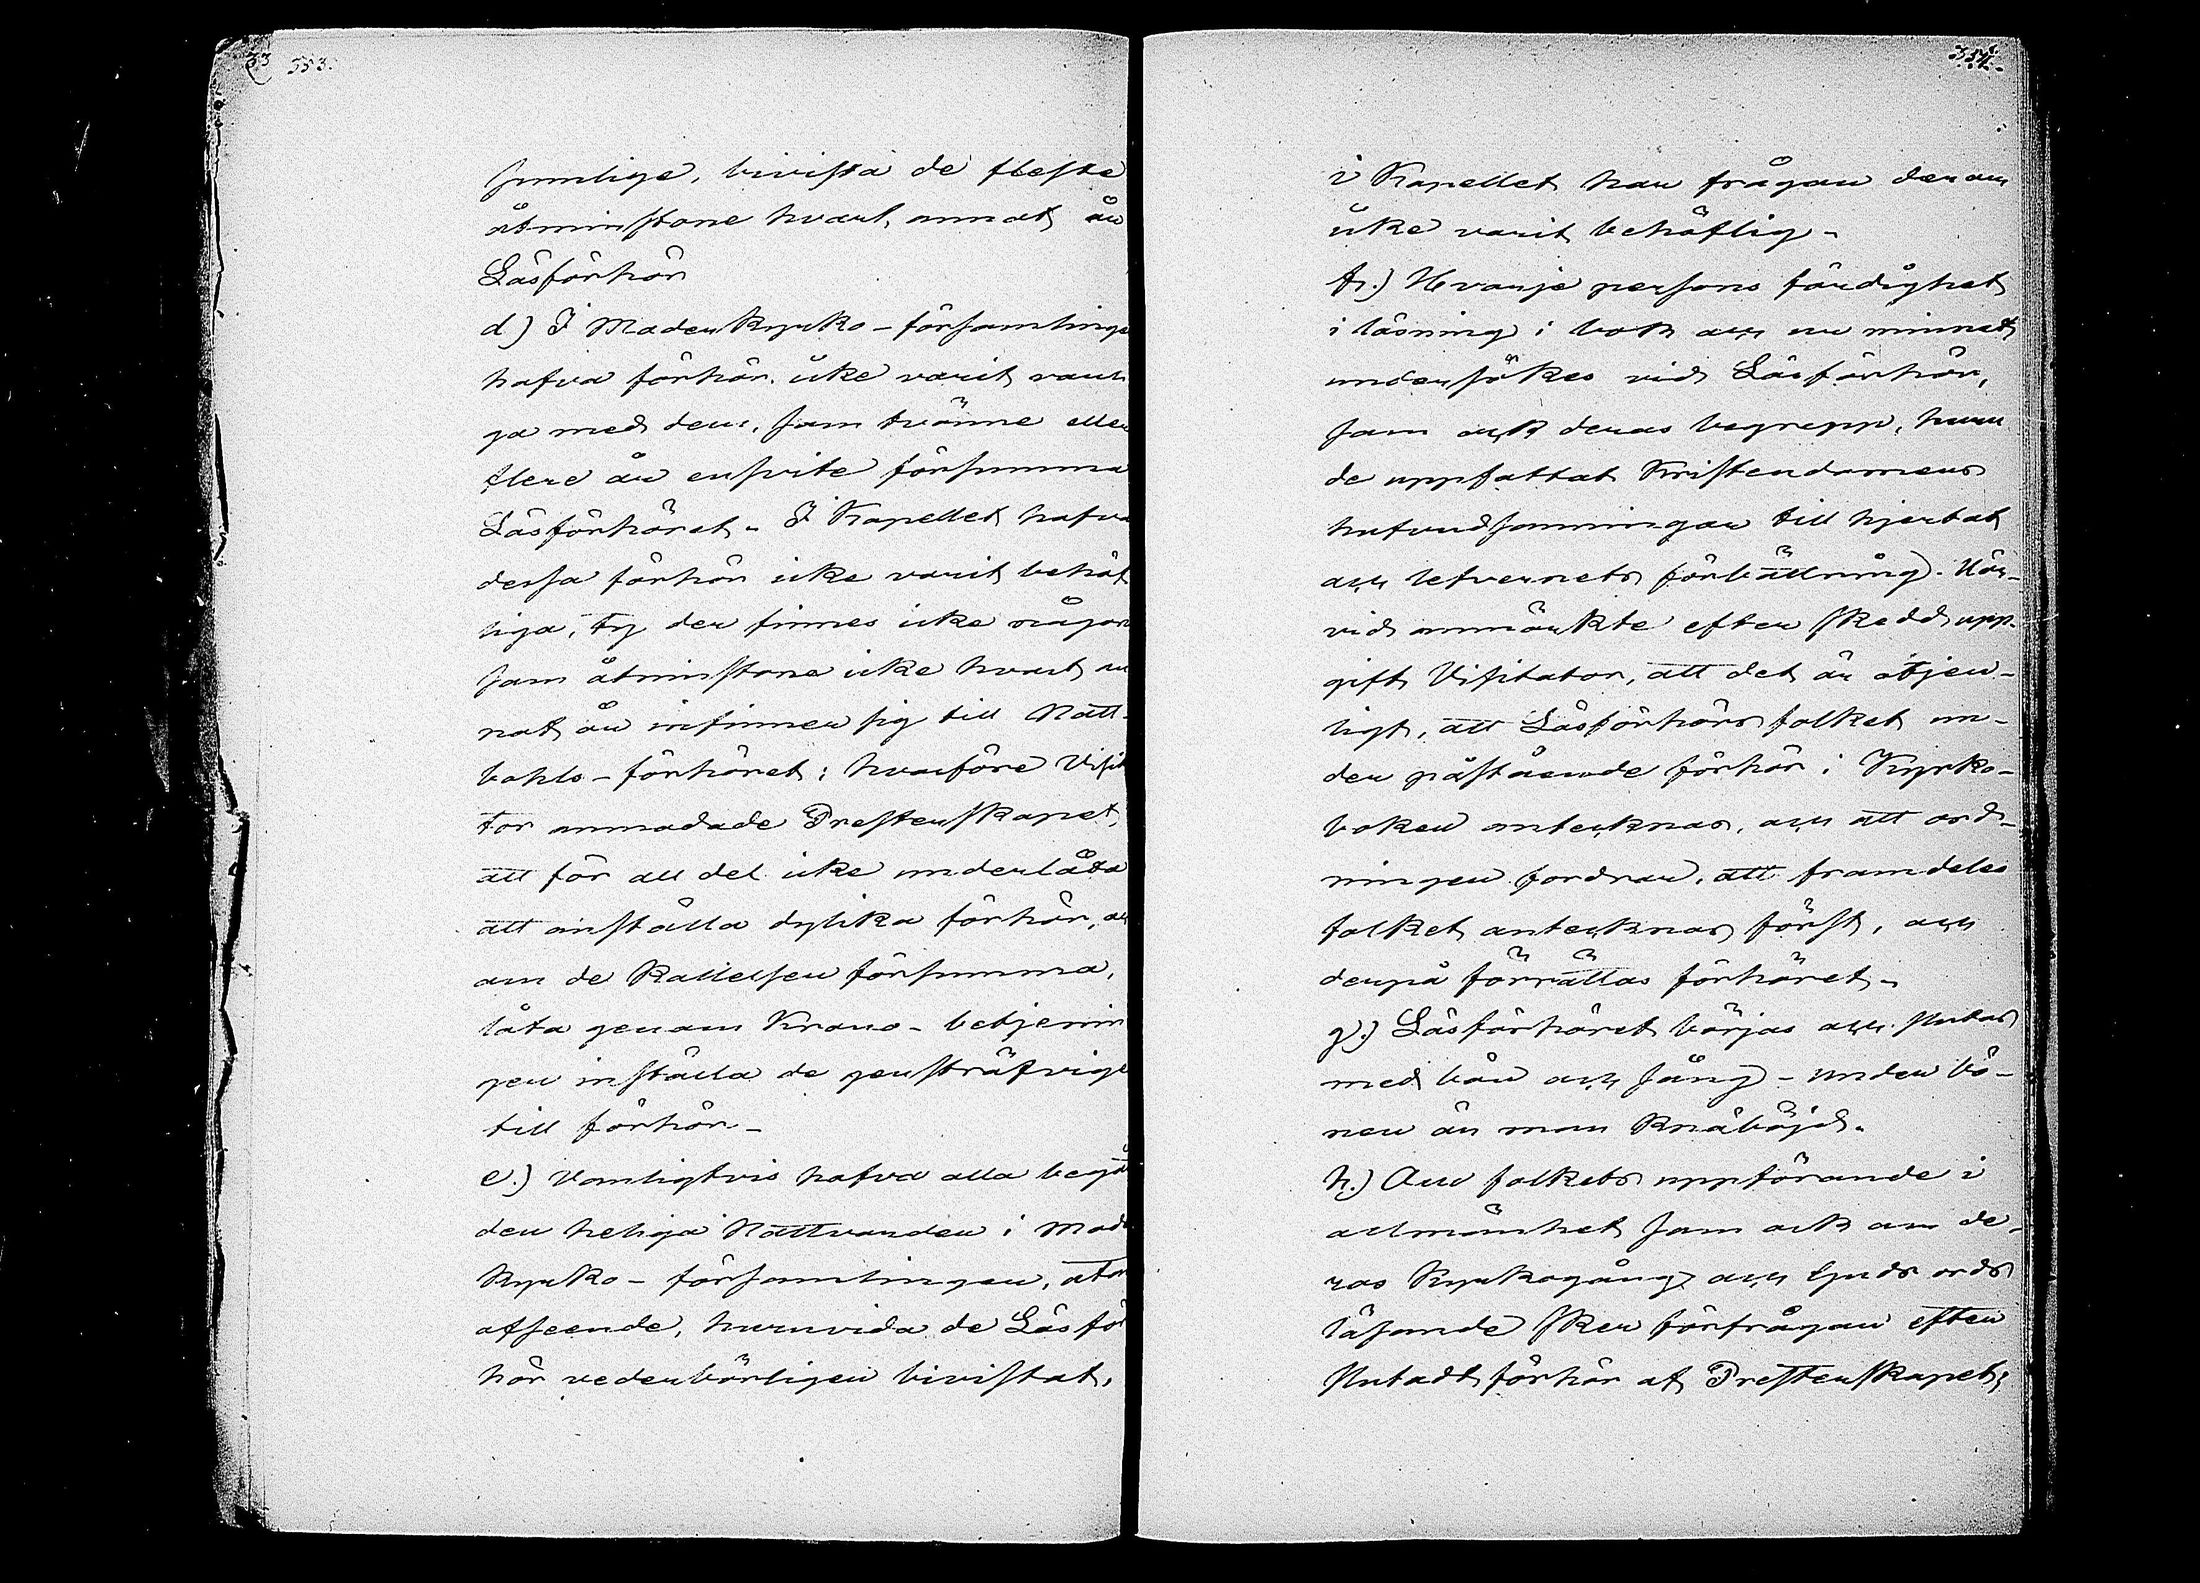 33 353.
sumlige, bivista de fleste
åtminstone hvart annat år
Läsförhör
d) I Moderkyrko-församlinge
hafva förhör icke varit vanli
ga med dem, som tvänne eller
flere år enskilte försumma
Läsförhöret. I Kapellet hafva
dessa förhör icke varit behöf
liga, ty der finnes icke någon
som åtminstone icke hvart an
nat år infinner sig till Natt-
vahls-förhöret; hvarföre Visit
tor anmadade Presterskapet,
att för all del icke underlåta
att anställa dylika förhör, oc
om de Kallelsen försumma,
låta genom Krono-betjenin
gen inställa de gensträfvige
till förhör.
e.) Vanligtvis hafva alla begå
den heliga Nattvarden i Mode
Kyrko-församlingen, utan
afseende, huruvida de Läsför
hör vederbörligen bivistat,
354.
i Kapellet har frågan derom
icke varit behöflig.
f.) Hvarje persons färdighet
i läsning i bok och ur minnet
undersökes vid Läsförhör,
som ock deras begrepp, huru
de uppfattat Kristendomens
hufvudsanningar till hjertat
och lefvernets förbättring. Här-
vid anmärkte efter skedd upp-
gift Visitator, att det är otjen-
ligt, att Läsförhörs folket un-
der påstående förhör i Kyrko-
boken antecknas, och att ord-
ningen fordrar, att framdeles
folket antecknas först, och
derpå förrättas förhöret.
g.) Läsförhöret börjas och slutas
med bön och sång – under bö-
nen är man Knäböjd.
h.) Om folkets uppförande i
allmänhet som ock om de-
ras Kyrkogång och Guds ords
läsande sker förfrågan efter
slutadt förhör af Presterskapet;